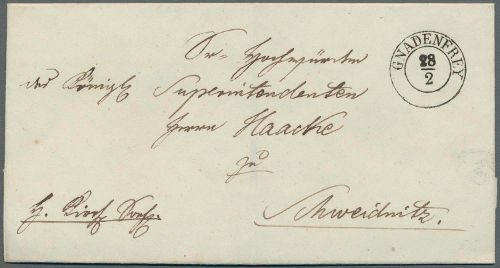 GNADENFREY
28
2
Sr. Hochwürden
des Königl. Superintendenten
Herrn Haacke
zu
Schweidnitz.
H. Kirch. Sach.